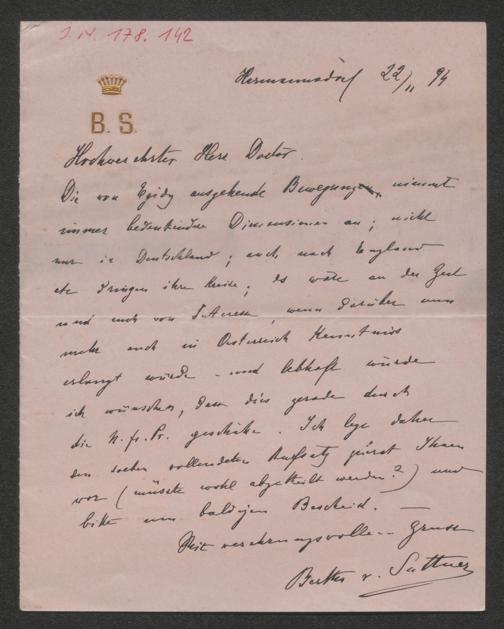 J. N. 178.142
Hermannsdorf 22/11 94
B. S.
Hochverehrter Herr Doctor.
Die von Egidy ausgehende Bewegung, nimmt
immer bedeutendere Dimensionen an; nicht
nur in Deutschland; auch nach England
etc dringen ihre Kreise; es wäre an der Zeit
und auch von Interesse, wenn darüber nun
mehr auch in Oesterreich Kenntniss
erlangt würde – und lebhaft würde
ich wünschen, dass dies gerade durch
die N. fr. Pr. geschähe. Ich lege daher
den soeben vollendeten Aufsatz zuerst Ihnen
vor (müsste wohl abgetheilt werden?) und
bitte um baldigen Bescheid. —
Mit verehrungsvollem Gruss
Bertha v. Suttner